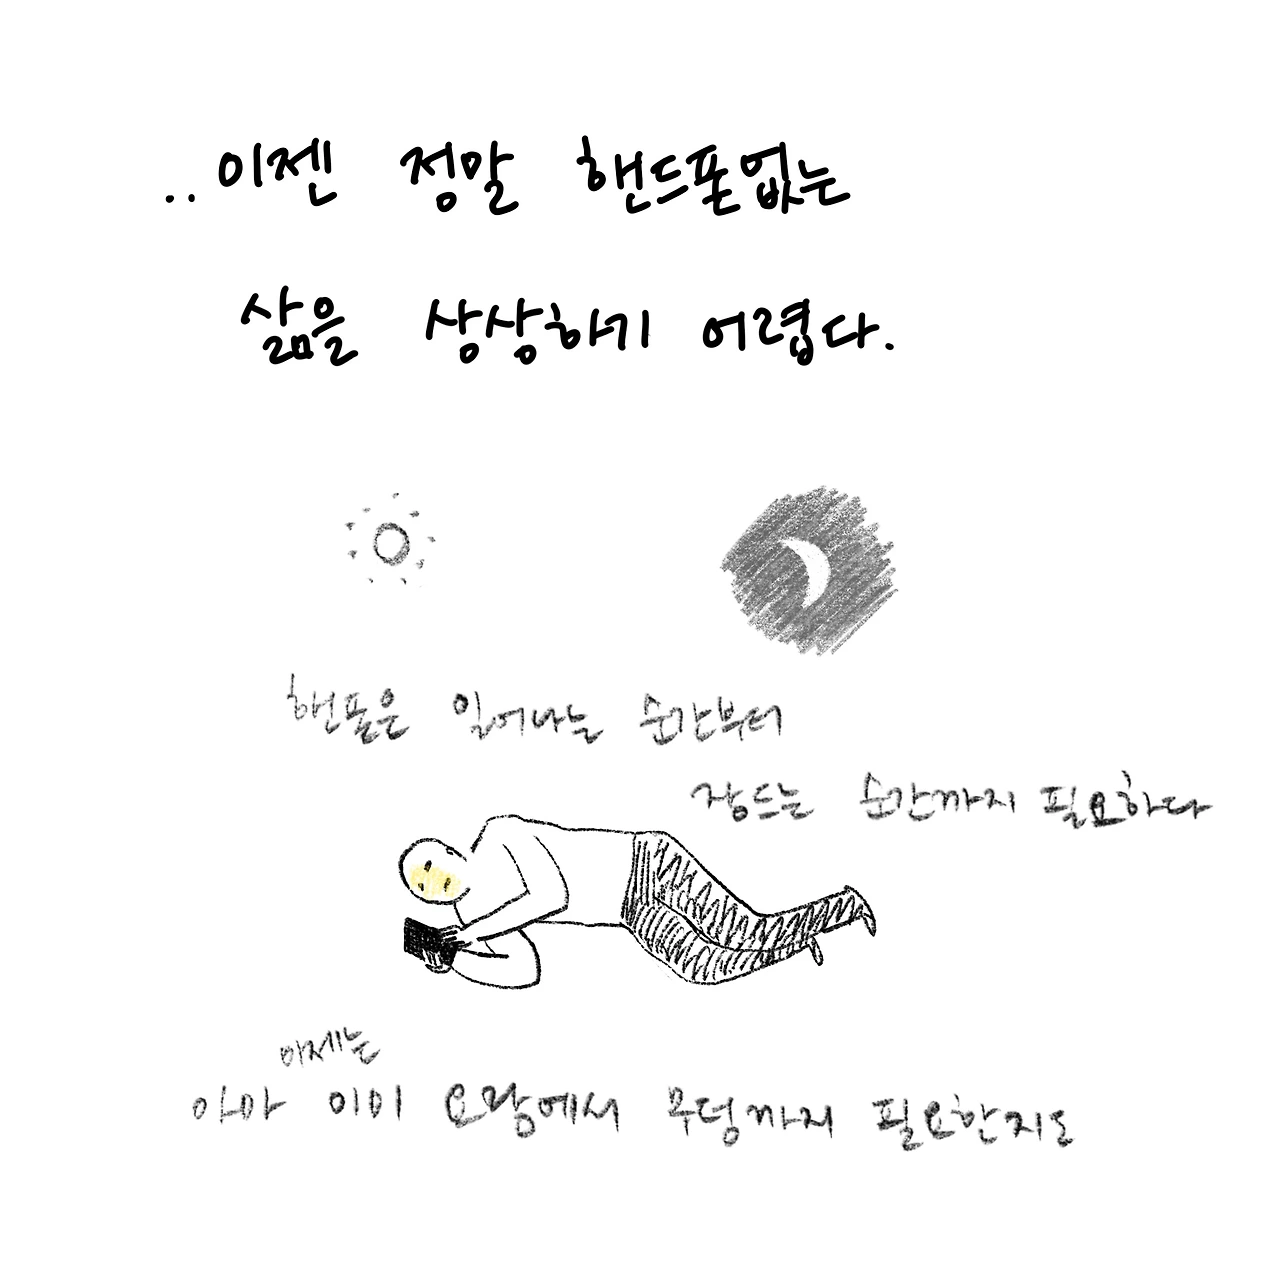 ..이젠 정말 핸드폰없는
삶을 상상하기 어렵다.
핸폰은 일어나는 순간부터
잠드는 순간까지 필요하다
이제는
아마 이미 요람에서 무덤까지 필요한지도